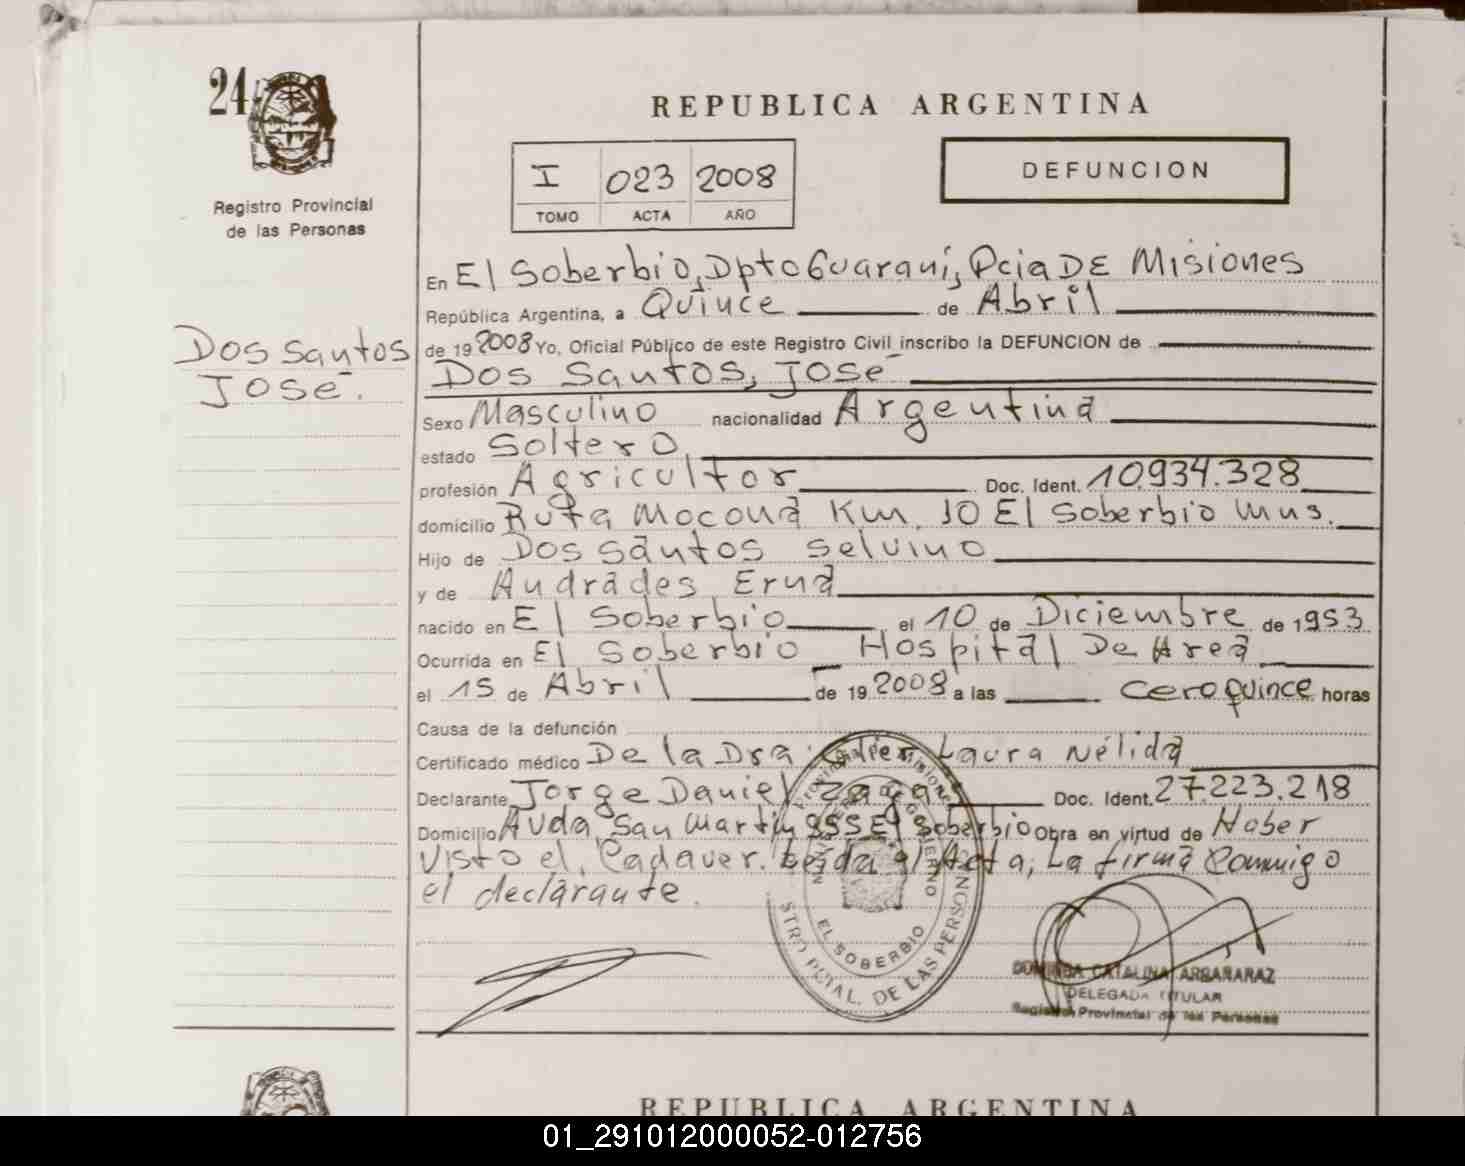 24
Registro Provincial
de las Personas
Dos Santos
José.
REPUBLICA ARGENTINA
I 023 2008
TOMO ACTA AÑO
DEFUNCION
En El Soberbio, Dpto Guaraní, Pcia DE Misiones
República Argentina, a Quince de Abril
de 19 2008 Yo, Oficial Público de este Registro Civil inscribo la DEFUNCION de
Dos Santos, José
Sexo Masculino nacionalidad Argentina
estado Soltero
profesión Agricultor Doc. Ident. 10.934.328
domicilio Ruta Mocona Km. 10 El Soberbio Mns.
Hijo de Dos Santos Selvino
y de Andrades Erna
nacido en El Soberbio el 10 de Diciembre de 1953
Ocurrida en El Soberbio Hospital De Area
el 15 de Abril de 19 2008 a las Cero quince horas
Causa de la defunción
Certificado médico De la Dra Laura Nélida
Declarante Jorge Daniel Doc. Ident. 27.223.218
Domicilio Avda San Martin El Soberbio Obra en virtud de Haber
Visto el Cadaver. Leida el Acta, La firma Conmigo
el declarante.
EL SOBERBIO
DE LAS PERSON
CATALINA
DELEGADA TITULAR
Registro Provincial de las Personas
REPUBLICA ARGENTINA
01_291012000052-012756